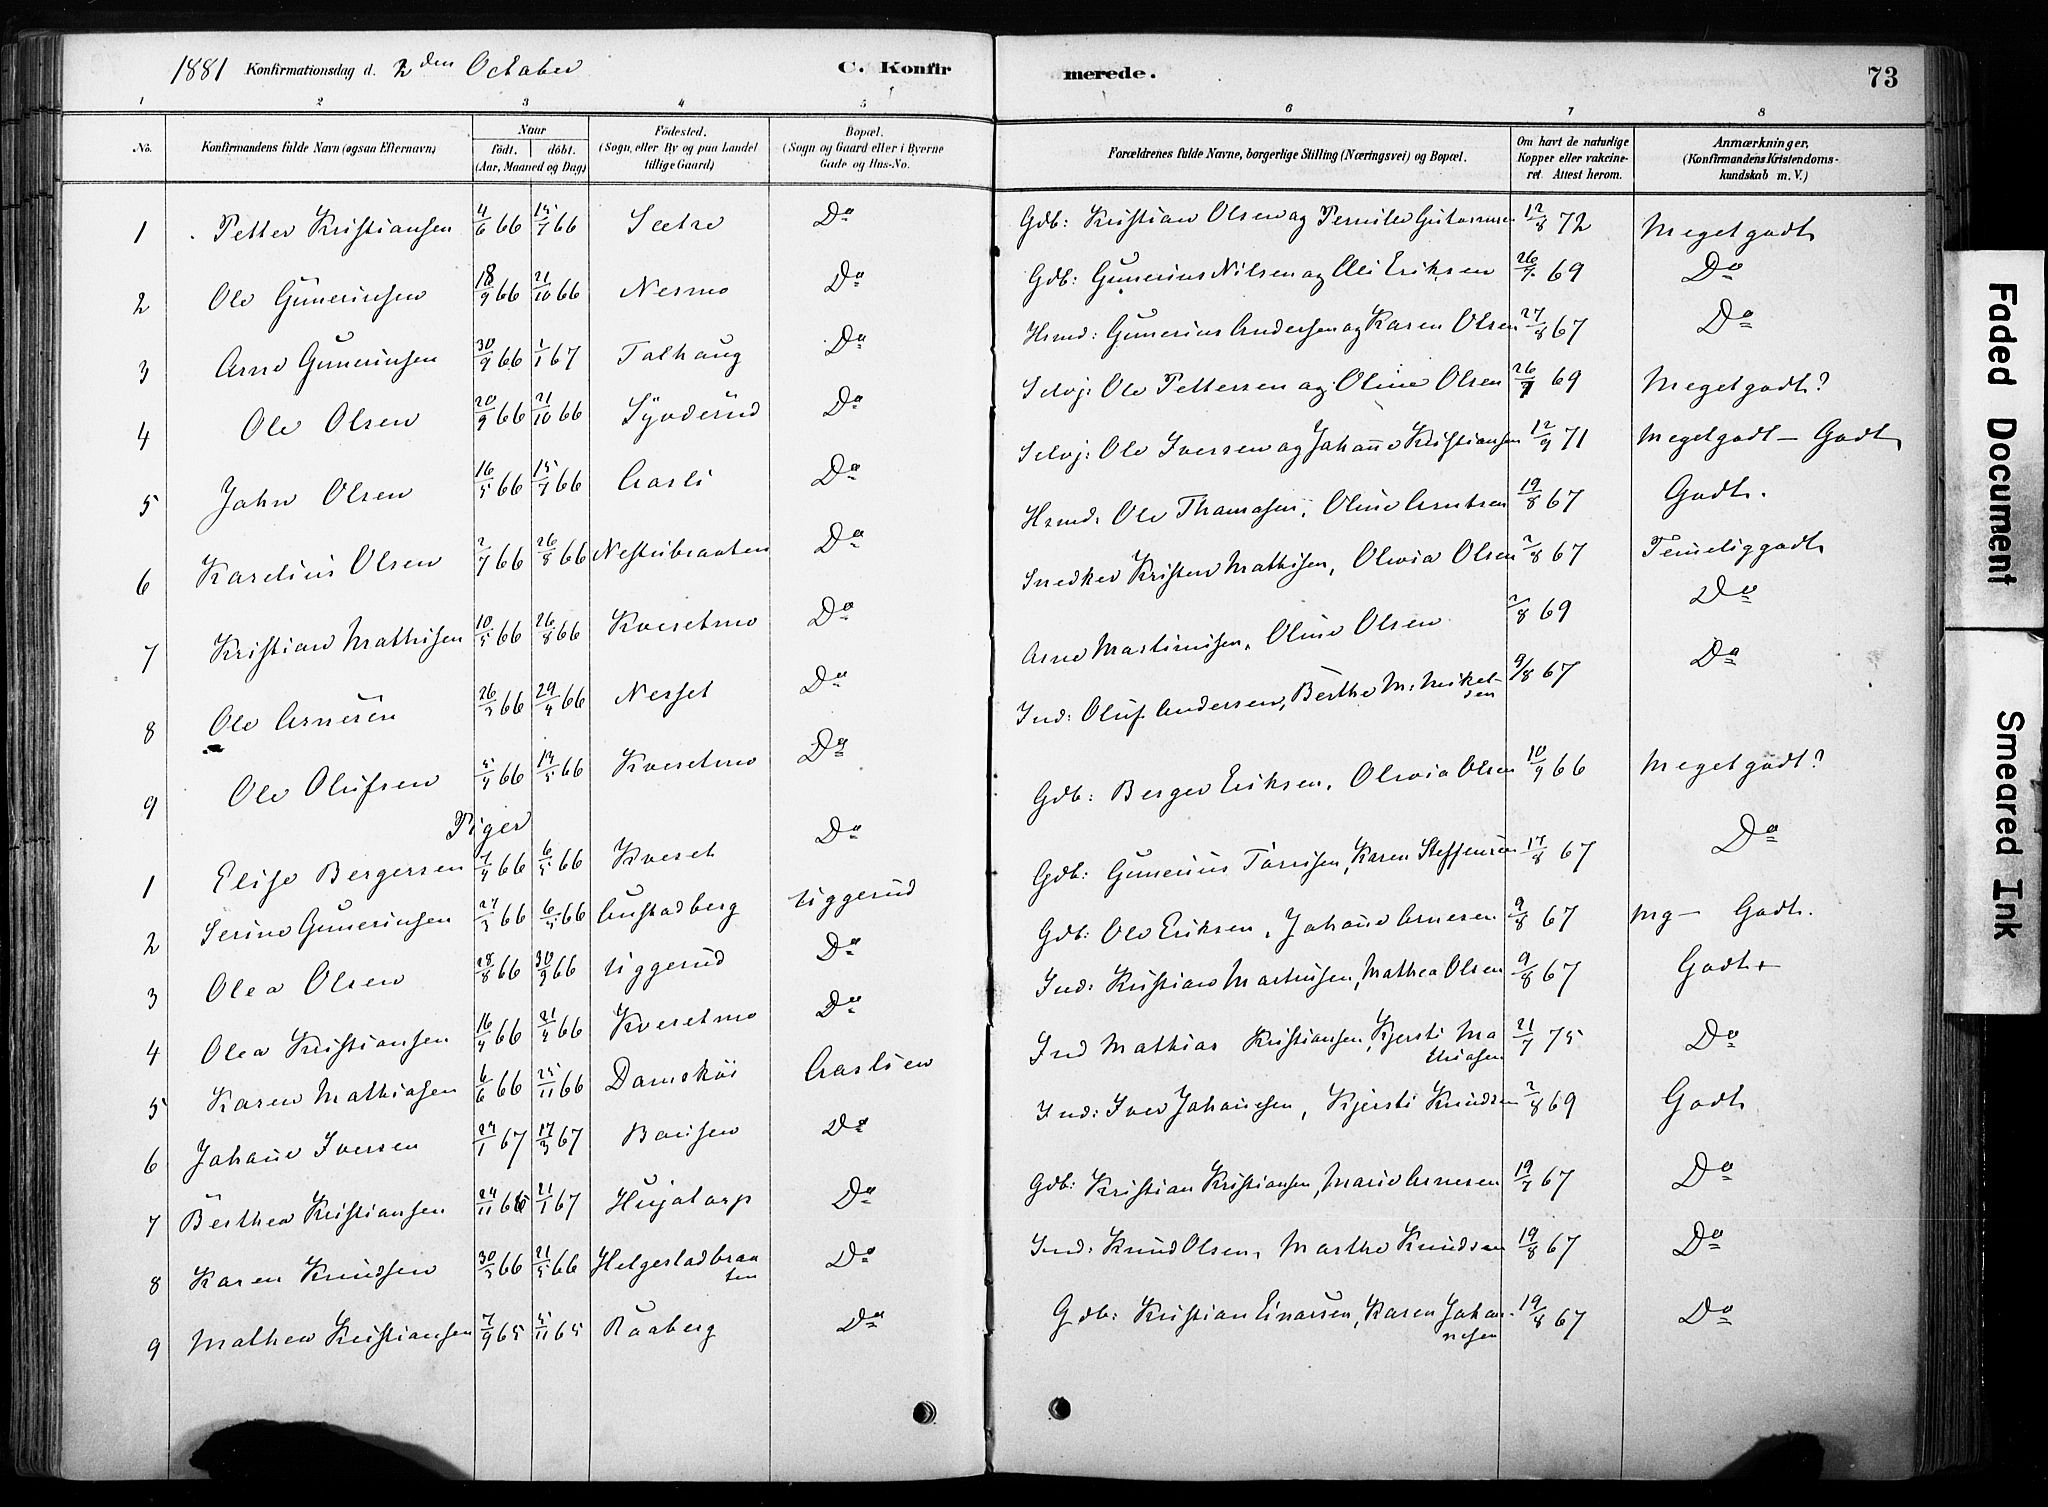 1881 Konfirmationsdag d. 2den October C. Konfirmerede. 73
1 2 3 4 5 6 7 8
No. Konfirmandens fulde Navn (ogsaa Efternavn) Naar födt. döbt. (Aar, Maaned og Dag) Födested. (Sogn, eller By og paa Landet tillige Gaard) Bopæl. (Sogn og Gaard eller i Byerne Gade og Hus-No. Forældrenes fulde Navne, borgerlige Stilling (Næringsvei) og Bopæl. Om havt de naturlige Kopper eller vakcineret. Attest herom. Anmærkninger. (Konfirmandens Kristendomskundskab m. V.)
1 Petter Kristiansen 4/6 66 15/7 66 Sætre Do Gdb: Kristian Olsen og Pernille 12/8 72 Meget godt
2 Ole Guneriusen 18/9 66 21/10 66 Nesmo Do Gdb: Gunerius Nilsen og Oli Eriksen 26/7 69 Do
3 Arne Gunerinsen 30/9 66 1/1 67 Talhaug Do Hsmd: Gunerius Andersen og Karen Olsen 27/8 67 Do
4 Ole Olsen 20/9 66 21/10 66 Synderud Do Selvj: Ole Pettersen og Oline Olsen 26/7 69 Meget godt?
5 Johan Olsen 16/5 66 15/7 66 Aasli Do Selvj: Ole Iversen og Johane Kristiansen 12/9 71 Meget godt – Godt
6 Karelius Olsen 2/7 66 26/8 66 Nestubraaten Do Hsmd: Ole Thomasen, Oline Arntsen 19/8 67 Godt.
7 Kristian Mathisen 10/5 66 26/8 66 Kvesetmo Do Snedker Kristen Mathisen, Olivia Olsen 2/8 67 Temelig godt
8 Ole Arnesen 26/3 66 29/4 66 Nesset Do Arne Martinisen, Oline Olsen 2/8 69 Do
9 Ole Olufsen 5/4 66 13/5 66 Kvesetmo Do Ind: Oluf Andersen, Berthe M: Mikelsen 9/8 67 Do
Piger
1 Elise Bergersen 7/4 66 6/5 66 Kveset Do Gdb: Berger Eriksen, Olivia Olsen 10/9 66 Meget godt?
2 Serine Gunerinsen 27/3 66 6/5 66 Austadberg Uggerud Gdb: Gunerius Torrisen, Karen Steffensen 17/8 67 Do
3 Olea Olsen 28/8 66 30/9 66 Uggerud Do Gdb: Ole Eriksen, Johane Arnesen 9/8 67 Mg – Godt.
4 Olea Kristiansen 16/4 66 21/4 66 Kvesetmo Do Ind: Kristian Martinsen, Mathea Olsen 9/8 67 Godt +
5 Karen Mathiasen 6/6 66 25/11 66 Damskoi Aaslien Ind Mathias Kristiansen, Kjersti Mathiasen 21/7 75 Do
6 Johane Iversen 27/1 67 17/3 67 Do Ind: Iver Johanesen, Kjersti Knudsen 2/8 69 Godt
7 Berthea Kristiansen 24/11 66 21/1 67 Hujatorp Do Gdb: Kristian Kristiansen, Marie Arnesen 19/7 67 Do
8 Karen Knudsen 30/3 66 21/5 66 Helgestadbraaten Do Ind: Knud Olsen, Marthe Knudsen 19/8 67 Do
9 Mathea Kristiansen 7/9 65 5/11 65 Raaberg Do Gdb: Kristian Einarsen, Karen Johannesen 19/8 67 Do
Faded Document
Smeared Ink